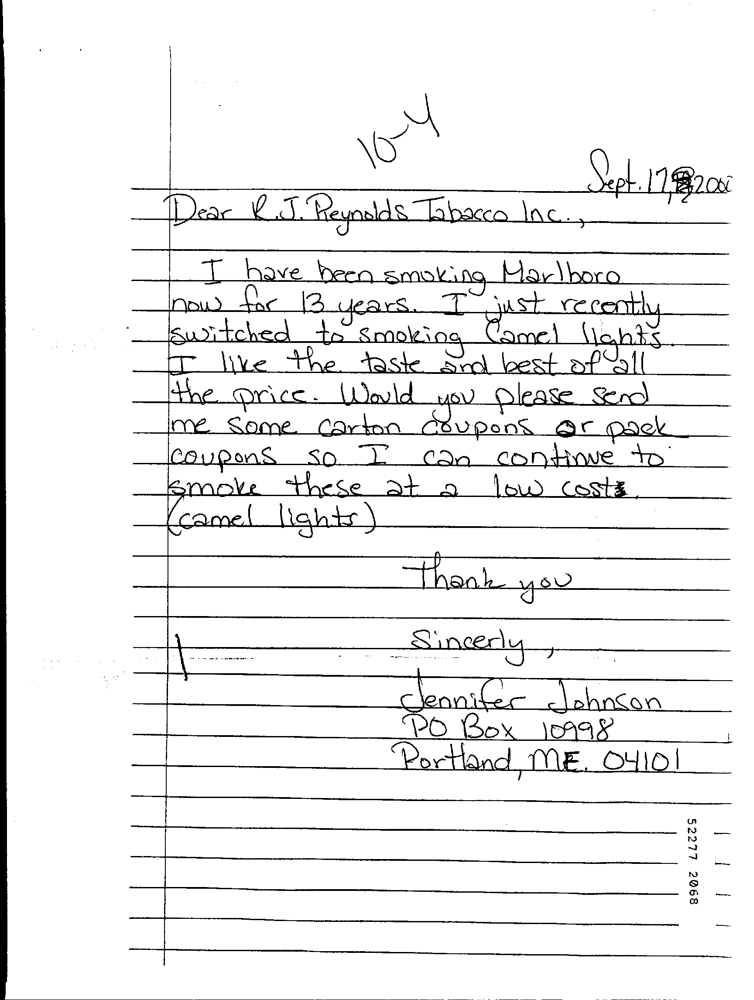 10-4
Sept. 17, 200
Dear R.J. Reynolds Tabacco Inc.,
I have been smoking Marlboro
now for 13 years. I just recently
switched to smoking Camel lights.
I like the taste and best of all
the price. Would you please send
me some carton coupons or pack
coupons so I can continue to
smoke these at a low cost.
(camel lights)
Thank you
Sincerly,
Jennifer Johnson
PO Box 10998
Portland, ME. 04101
52277 2068